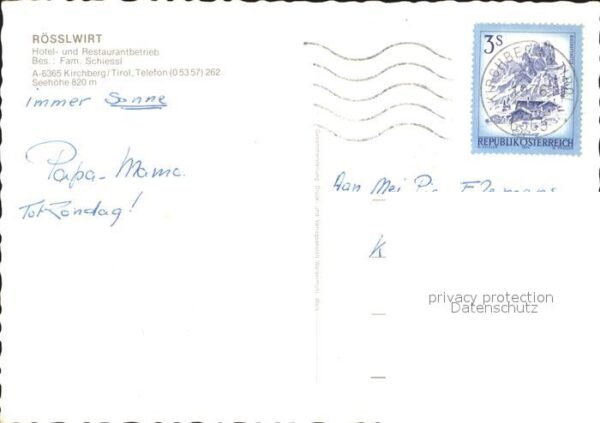 RÖSSLWIRT
Hotel- und Restaurantbetrieb
Bes.: Fam. Schiessl
A-6365 Kirchberg/Tirol, Telefon (0 53 57) 262
Seehöhe 820 m
immer Sonne
Papa - Mama.
Tot Zondag!
3 S
KIRCHBERG
REPUBLIK ÖSTERREICH
Aan Mej
K
privacy protection
Datenschutz